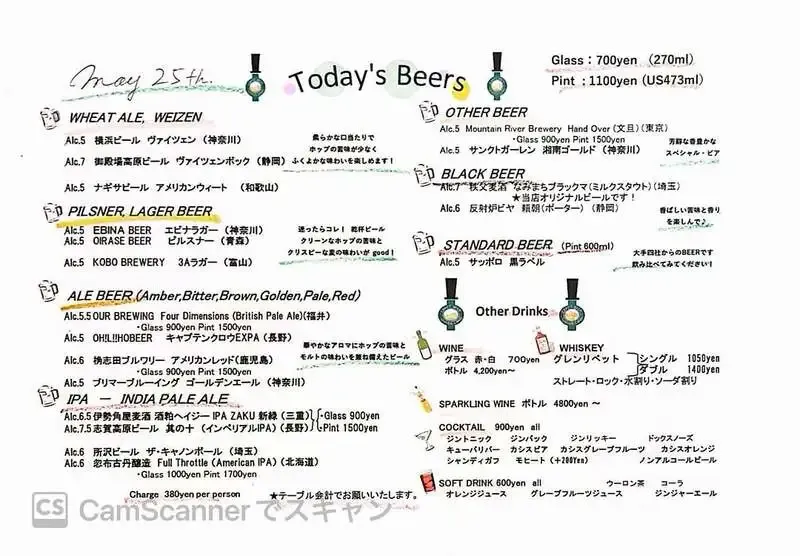 May 25th.
Today's Beers
Glass：700yen （270ml）
Pint：1100yen（US473ml）
WHEAT ALE, WEIZEN
Alc.5 横浜ビール ヴァイツェン（神奈川）
Alc.7 御殿場高原ビール ヴァイツェンボック（静岡）
Alc.5 ナギサビール アメリカンウィート （和歌山）
柔らかな口当たりで
ホップの苦味が少なく
ふくよかな味わいを楽しめます！
PILSNER, LAGER BEER
Alc.5 EBINA BEER エビナラガー（神奈川）
Alc.5 OIRASE BEER ピルスナー（青森）
Alc.5 KOBO BREWERY 3Aラガー（富山）
迷ったらコレ！ 乾杯ビール
クリーンなホップの苦味と
クリスピーな麦の味わいが good！
ALE BEER (Amber,Bitter,Brown,Golden,Pale,Red)
Alc.5.5 OUR BREWING Four Dimensions (British Pale Ale)(福井)
・Glass 900yen Pint 1500yen
Alc.5 OH!L!!HOBEER キャプテンクロウEXPA（長野）
Alc.6 桷志田ブルワリー アメリカンレッド(鹿児島)
・Glass 900yen Pint 1500yen
Alc.5 ブリマーブルーイング ゴールデンエール（神奈川）
華やかなアロマにホップの苦味と
モルトの味わいを兼ね備えたビール
IPA － INDIA PALE ALE
Alc.6.5 伊勢角屋麦酒 酒粕ヘイジー IPA ZAKU 新緑（三重）
Alc.7.5 志賀高原ビール 其の十 （インペリアルIPA）（長野）
・Glass 900yen
・Pint 1500yen
Alc.6 所沢ビール ザ・キャノンボール（埼玉）
Alc.6 忽布古丹醸造 Full Throttle (American IPA)（北海道）
・Glass 1000yen Pint 1700yen
Charge 380yen per person
★テーブル会計でお願いいたします。
OTHER BEER
Alc.5 Mountain River Brewery Hand Over（文旦）（東京）
・Glass 900yen Pint 1500yen
Alc.5 サンクトガーレン 湘南ゴールド（神奈川）
芳醇な香豊かな
スペシャル・ビア
BLACK BEER
Alc.7 秩父麦酒 なみまちブラックマ（ミルクスタウト）（埼玉）
★当店オリジナルビールです！
Alc.6 反射炉ビヤ 頼朝（ポーター）（静岡）
香ばしい苦味と香り
を楽しんで♪
STANDARD BEER （Pint 600ml）
Alc.5 サッポロ 黒ラベル
大手四社からのBEERです
飲み比べてみてください！
Other Drinks
WINE
グラス 赤・白 700yen
ボトル 4,200yen～
WHISKEY
グレンリベット シングル 1050yen
ダブル 1400yen
ストレート・ロック・水割り・ソーダ割り
SPARKLING WINE ボトル 4800yen ～
COCKTAIL 900yen all
ジントニック ジンバック ジンリッキー ドックスノーズ
キューバリバー カシスビア カシスグレープフルーツ カシスオレンジ
シャンディガフ モヒート（＋200Yen） ノンアルコールビール
SOFT DRINK 600yen all ウーロン茶 コーラ
オレンジジュース グレープフルーツジュース ジンジャーエール
CS CamScanner でスキャン